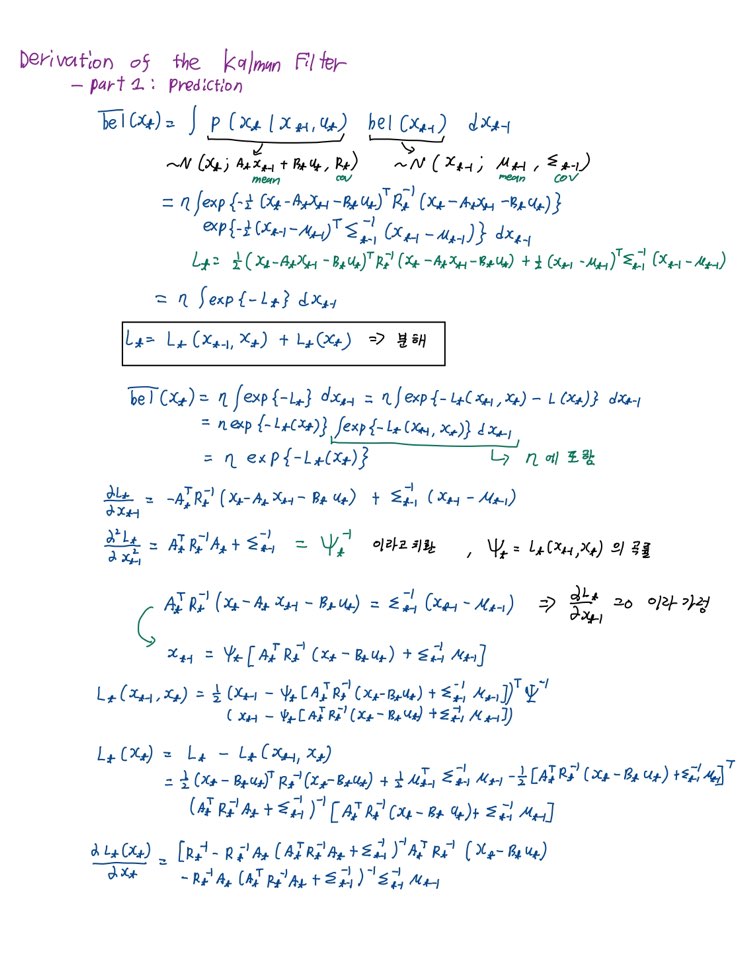 Derivation of the Kalman Filter
- part 1 : Prediction
bel̅(xₜ) = ∫ p(xₜ | xₜ₋₁, uₜ) bel(xₜ₋₁) dxₜ₋₁
~N(xₜ ; Aₜxₜ₋₁ + Bₜuₜ, Rₜ) ~N(xₜ₋₁ ; μₜ₋₁, Σₜ₋₁)
mean cov mean cov
= η ∫exp{-½(xₜ-Aₜxₜ₋₁-Bₜuₜ)ᵀRₜ⁻¹(xₜ-Aₜxₜ₋₁-Bₜuₜ)}
exp{-½(xₜ₋₁-μₜ₋₁)ᵀΣₜ₋₁⁻¹(xₜ₋₁-μₜ₋₁)} dxₜ₋₁
Lₜ = ½(xₜ-Aₜxₜ₋₁-Bₜuₜ)ᵀRₜ⁻¹(xₜ-Aₜxₜ₋₁-Bₜuₜ) + ½(xₜ₋₁-μₜ₋₁)ᵀΣₜ₋₁⁻¹(xₜ₋₁-μₜ₋₁)
= η ∫exp{-Lₜ} dxₜ₋₁
Lₜ = Lₜ(xₜ₋₁, xₜ) + Lₜ(xₜ) => 분해
bel̅(xₜ) = η ∫exp{-Lₜ} dxₜ₋₁ = η ∫exp{-Lₜ(xₜ₋₁, xₜ) - L(xₜ)} dxₜ₋₁
= η exp{-Lₜ(xₜ)} ∫exp{-Lₜ(xₜ₋₁, xₜ)} dxₜ₋₁
= η exp{-Lₜ(xₜ)} ↳ η에 포함
∂Lₜ/∂xₜ₋₁ = -AₜᵀRₜ⁻¹(xₜ-Aₜxₜ₋₁-Bₜuₜ) + Σₜ₋₁⁻¹(xₜ₋₁-μₜ₋₁)
∂²Lₜ/∂xₜ₋₁² = AₜᵀRₜ⁻¹Aₜ + Σₜ₋₁⁻¹ = Ψₜ⁻¹ 이라고 치환 , Ψₜ = Lₜ(xₜ₋₁, xₜ)의 곡률
AₜᵀRₜ⁻¹(xₜ-Aₜxₜ₋₁-Bₜuₜ) = Σₜ₋₁⁻¹(xₜ₋₁-μₜ₋₁) => ∂Lₜ/∂xₜ₋₁ = 0 이라 가정
xₜ₋₁ = Ψₜ[AₜᵀRₜ⁻¹(xₜ-Bₜuₜ) + Σₜ₋₁⁻¹μₜ₋₁]
Lₜ(xₜ₋₁, xₜ) = ½(xₜ₋₁ - Ψₜ[AₜᵀRₜ⁻¹(xₜ-Bₜuₜ) + Σₜ₋₁⁻¹μₜ₋₁])ᵀΨ⁻¹
(xₜ₋₁ - Ψₜ[AₜᵀRₜ⁻¹(xₜ-Bₜuₜ) + Σₜ₋₁⁻¹μₜ₋₁])
Lₜ(xₜ) = Lₜ - Lₜ(xₜ₋₁, xₜ)
= ½(xₜ-Bₜuₜ)ᵀRₜ⁻¹(xₜ-Bₜuₜ) + ½μₜ₋₁ᵀΣₜ₋₁⁻¹μₜ₋₁ - ½[AₜᵀRₜ⁻¹(xₜ-Bₜuₜ) + Σₜ₋₁⁻¹μₜ₋₁]ᵀ
(AₜᵀRₜ⁻¹Aₜ + Σₜ₋₁⁻¹)⁻¹[AₜᵀRₜ⁻¹(xₜ-Bₜuₜ) + Σₜ₋₁⁻¹μₜ₋₁]
∂Lₜ(xₜ)/∂xₜ = [Rₜ⁻¹ - Rₜ⁻¹Aₜ(AₜᵀRₜ⁻¹Aₜ + Σₜ₋₁⁻¹)⁻¹AₜᵀRₜ⁻¹(xₜ-Bₜuₜ)
- Rₜ⁻¹Aₜ(AₜᵀRₜ⁻¹Aₜ + Σₜ₋₁⁻¹)⁻¹Σₜ₋₁⁻¹μₜ₋₁